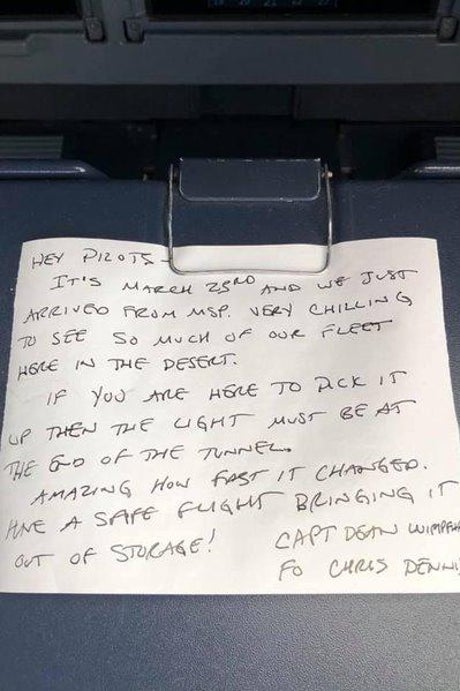 HEY PILOTS-
IT'S MARCH 23RD AND WE JUST
ARRIVED FROM MSP. VERY CHILLING
TO SEE SO MUCH OF OUR FLEET
HERE IN THE DESERT.
IF YOU ARE HERE TO PICK IT
UP THEN THE LIGHT MUST BE AT
THE END OF THE TUNNEL.
AMAZING HOW FAST IT CHANGED.
HAVE A SAFE FLIGHT BRINGING IT
OUT OF STORAGE!
CAPT DEAN
FO CHRIS DENNIS